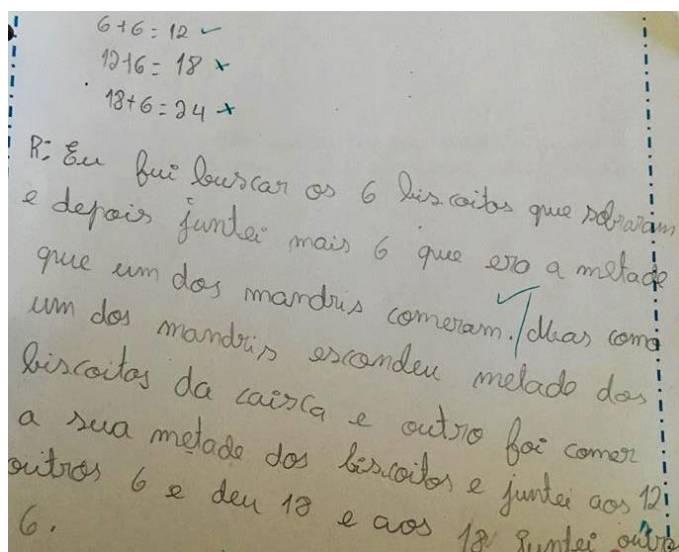 6+6=12 ✓
12+6=18 x
18+6=24 x
R: Eu fui buscar os 6 biscoitos que sobraram
e depois juntei mais 6 que era a metade
que um dos mandris comeram. ✓ / Mas como
um dos mandris escondeu metade dos
biscoitos da caisca e outro foi comer
a sua metade dos biscoitos e juntei aos 12
outros 6 e deu 18 e aos 18 juntei outro
6.